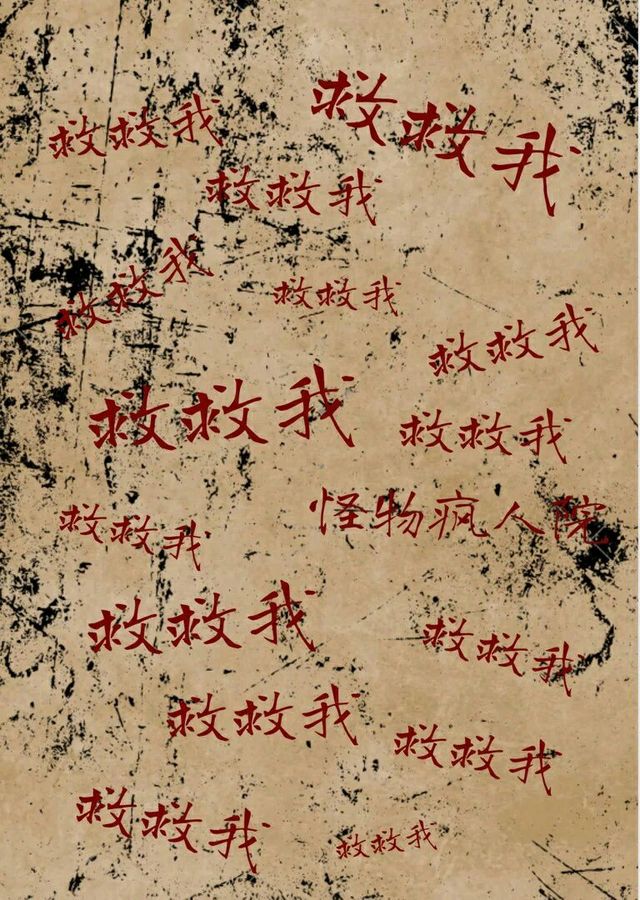 救救我
救救我
救救我
救救我
救救我
救救我
救救我
救救我
救救我
怪物疯人院
救救我
救救我
救救我
救救我
救救我
救救我